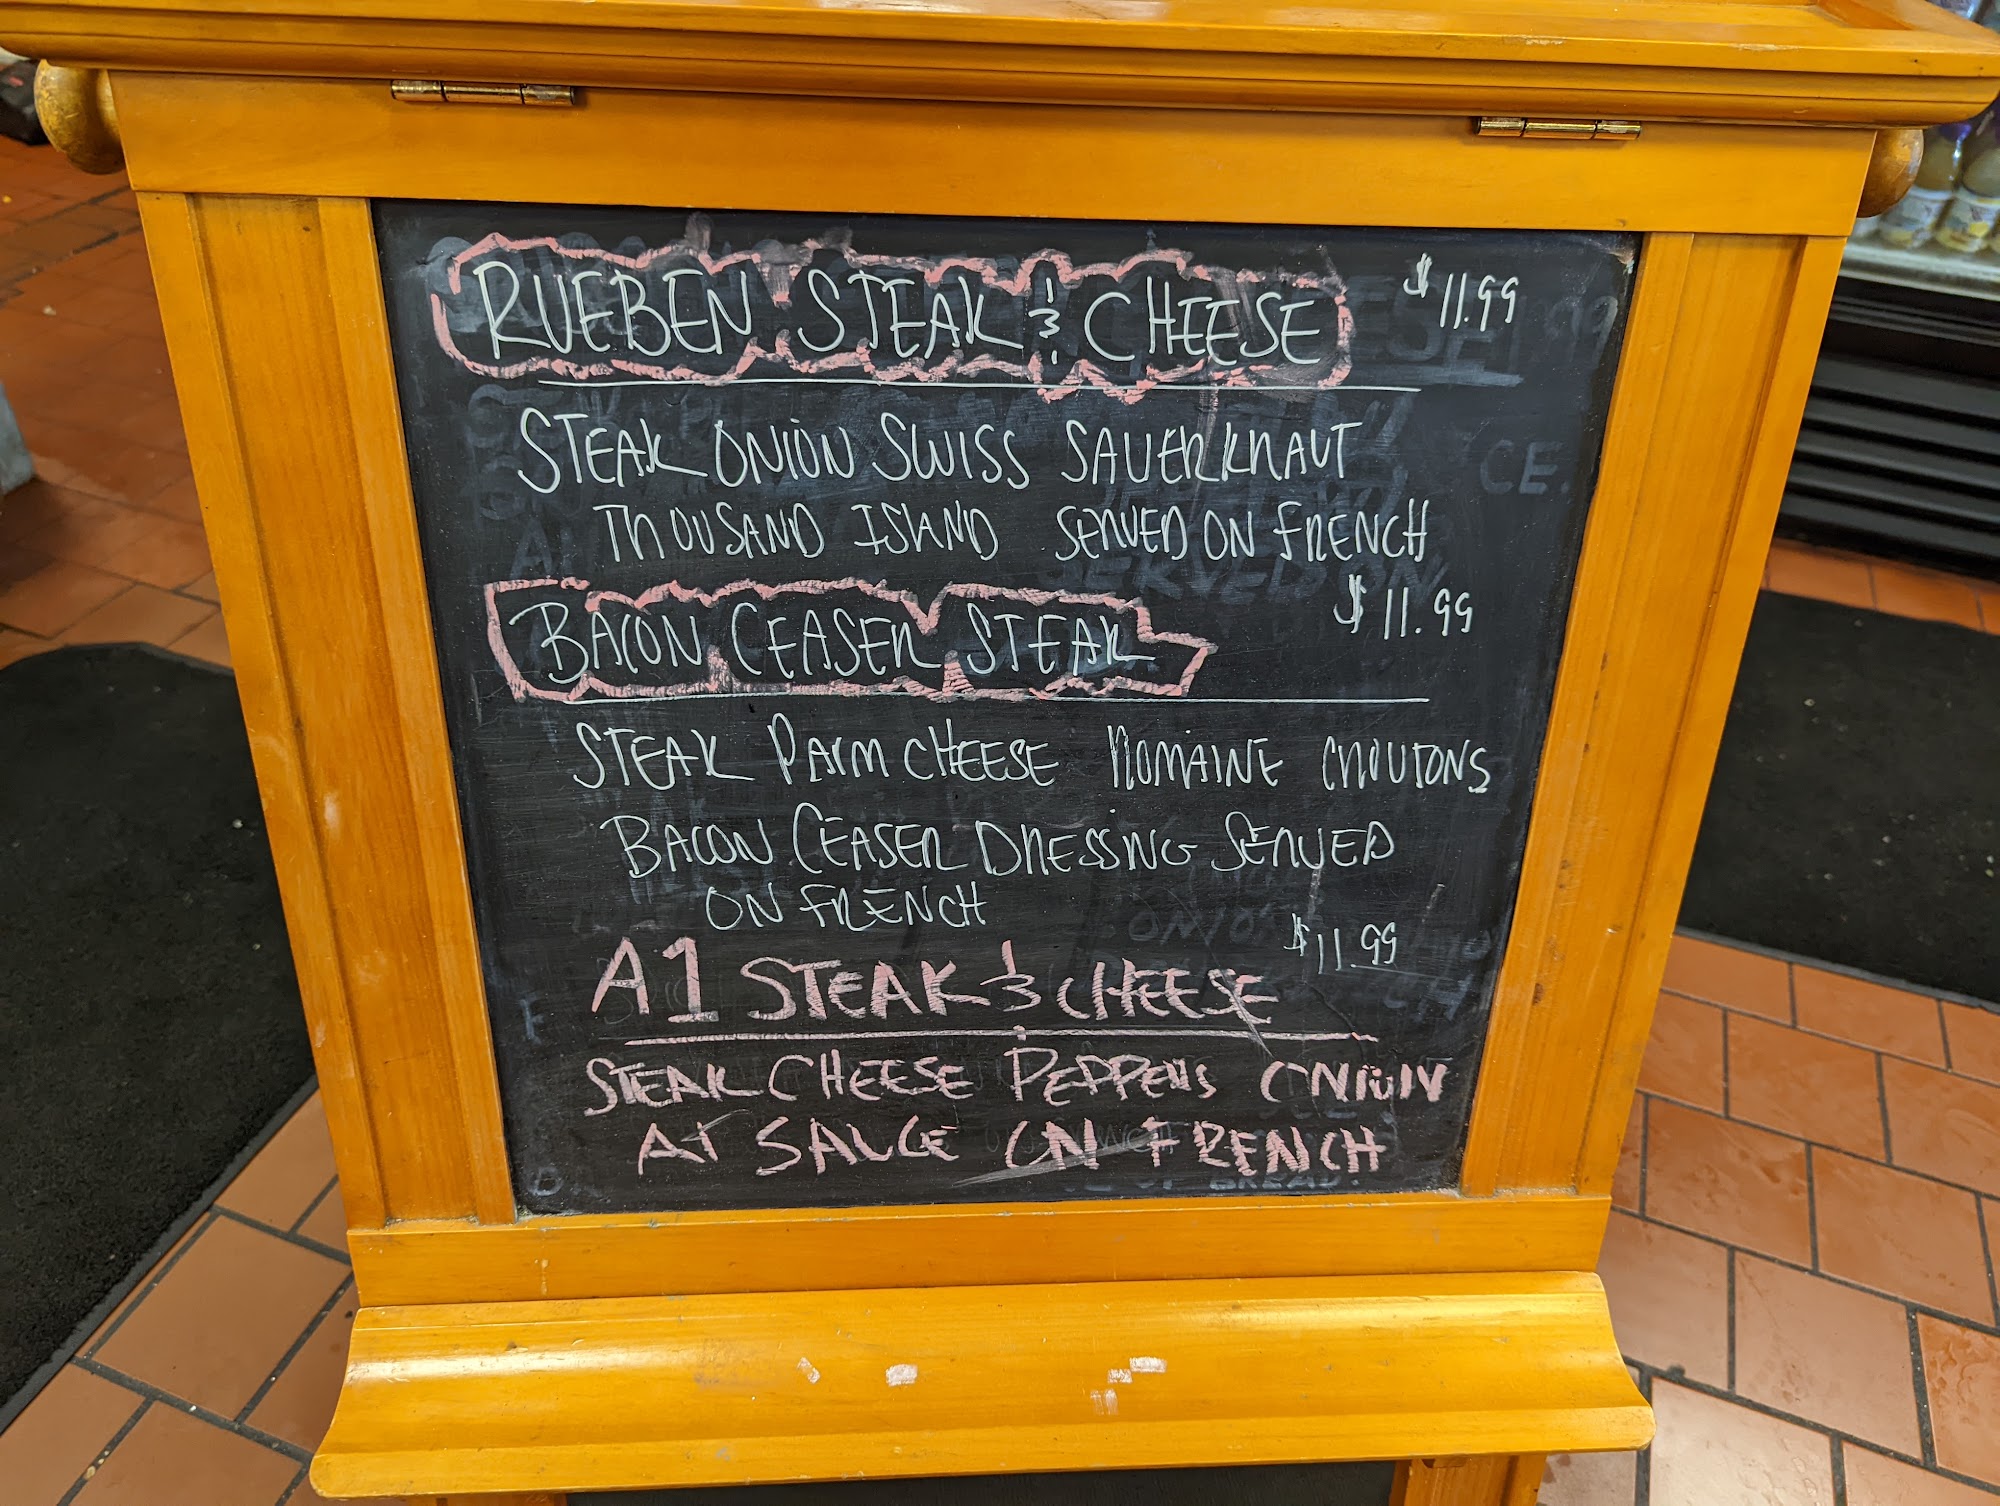 RUEBEN STEAK & CHEESE $11.99
STEAK ONION SWISS SAUERKRAUT
THOUSAND ISLAND SERVED ON FRENCH
BACON CEASER STEAK $11.99
STEAK PARM CHEESE ROMAINE CROUTONS
BACON CEASER DRESSING SERVED
ON FRENCH
$11.99
A1 STEAK & CHEESE
STEAK CHEESE PEPPERS ONION
A1 SAUCE ON FRENCH